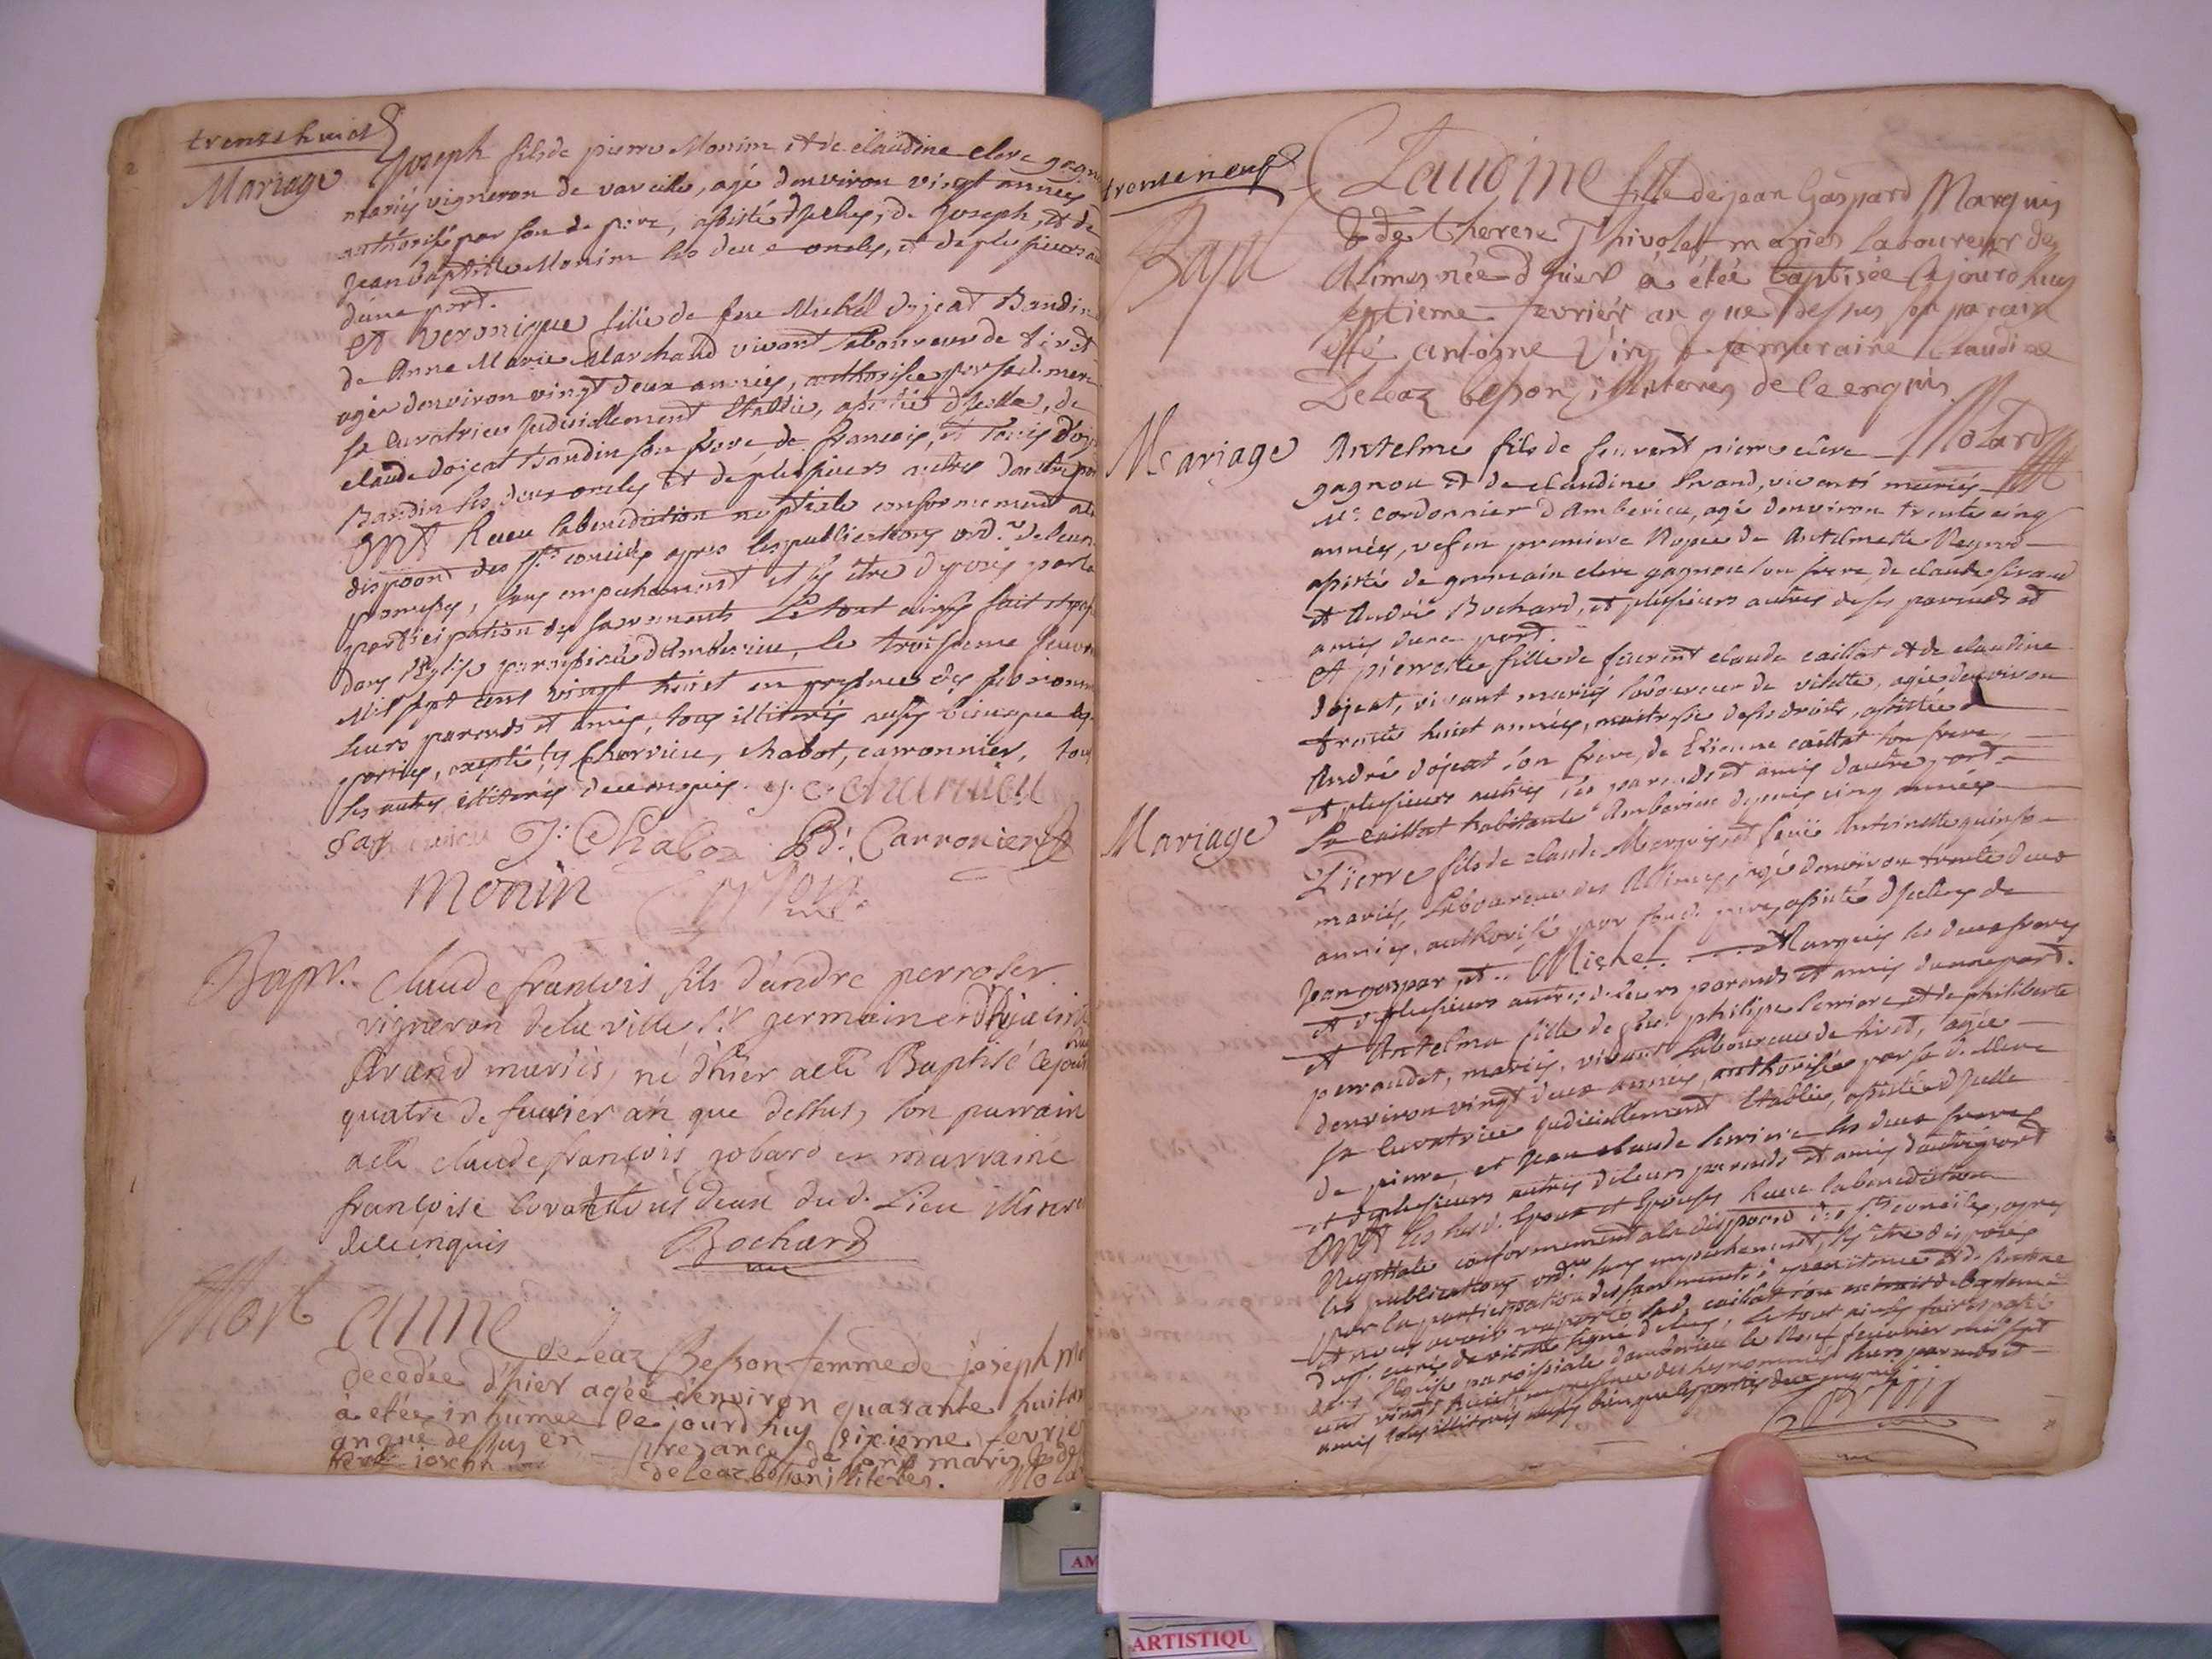 trente huict
Mariage Joseph fils de pierre Monin et de claudine clerc gagnou
mariés vigneron de vareille, agé denviron vingt années
authorisé par son d. pere, assisté d'jceluy, de Joseph, et de
Jean baptiste Monin ses deux oncles, et de plusieurs
d'une part.
et veronique fille de feu Michel dojeat Baudin
de Anne Marie Marchand vivant laboureur de tiret
agée denviron vingt deux années, authorisée par sad. mere
sa curatrice judiciellement etablie, assistée d'jcelle, de
claude dojeat baudin son frere, de francois, et
Baudin ses deux oncles et de plusieurs autres dautre part
Ont Receu la benediction nuptiale conformement
dispoon des sts conciles apres les publications ordres de leurs
promesses, sans empechement et s'y etre disposés par la
participation des sacrements Le tout ainsy fait et passé
dans l'Eglise paroissiale d'Amberieu, le troisieme feuvrier
Mil sept cens vingt huict en presence des susnommés
leurs parends et amis, tous illitterés aussy bien que les
parties, excepté les Charvieu, chabot, carronnier, tous
les autres illiterés de ce enquis. charuieu
J. Chabot Bd. Carronier
Monin
Bapt. Claude francois fils d'andre perroset
vigneron de la ville St germain et
mariés, né d'hier a eté Baptisé cejourd'huy
quatre de fevrier an que dessus, son parrain
a eté claude francois gobard et marraine
francoise tous deux dud. Lieu illiterés
de ce enquis Bochard
Mort Anne deleaz Besson femme de joseph
decedée d'hier agéé denviron quarante huit ans
à etée inhumée ce jourd'huy sixieme fevrier
an que dessus en presance de son maris &
frere joseph deleaz besson illiteres.
trente neuf
Bapt Claudine fille de jean Gaspard Marquis
& de therese Thivolet mariés laboureur des
Alimes née d'hier a étéé baptisée cejourd'huy
septieme fevrier an que dessus son parain
été antoine & sa maraine claudine
Deleaz besson illiteres de ce enquis.
Molard
Mariage Antelme fils de feu vent pierre clerc
gagnou et de claudine sirand, vivants mariés
Me cordonnier d'Amberieu, agé denviron trente cinq
années, vef en premiere Nopce de Antelmette
assisté de germain clerc gagnou son frere, de claude sirand
et André Bochard, et plusieurs autres de ses parends et
amis dune part.
et pierrette fille de feu claude caillat et de claudine
dojeat, vivant mariés laboureur de vilette, agée denviron
trente huict années, maitresse de ses droits, assistée d
André dojeat son frere, de Etienne caillat son frere,
et plusieurs autres ses parends et amis dautre part.
La caillat habitante Amberieu depuis cinq années
Mariage Pierre fils de claude Marquis et feuë Antoinette quinson
mariés, laboureur des Allimes, agé denviron trente deux
années, authorisé par sond. pere, assisté d'jceluy de
Jean gaspar et .. Michel .... Marquis ses deux freres
et de plusieurs autres de leurs parends et amis dune part.
et Antelma fille de feu philipe serriere et de philiberte
perraudet, mariés, vivant laboureur de tiret, agée
denviron vingt deux années, authorisée par sad. Mere
sa curatrice judiciellement etablie, assistée d'jcelle
de pierre, et Jean claude serriere ses deux freres
et de plusieurs autres de leurs parends et amis dautre part
Ont les susd. Epoux et Epouses Receu la benediction
Nuptiale conformement a la dispoon des sts conciles, apres
les publications ordres sans empechement, s'y etre disposés
par la participation des sacrements de penitence et de
et nous avoir raporté lad. caillat son extrait de Bapteme
du sr. curé de vilette signé de luy, Le tout ainsy fait et passé
dans l'Eglise paroissiale damberieu le Neuf feuvrier mil sept
cent vingt huict en presence des susnommés leurs parends et
amis tous illiterés aussy bien que les parties de ce enquis
AM
ARTISTIQU